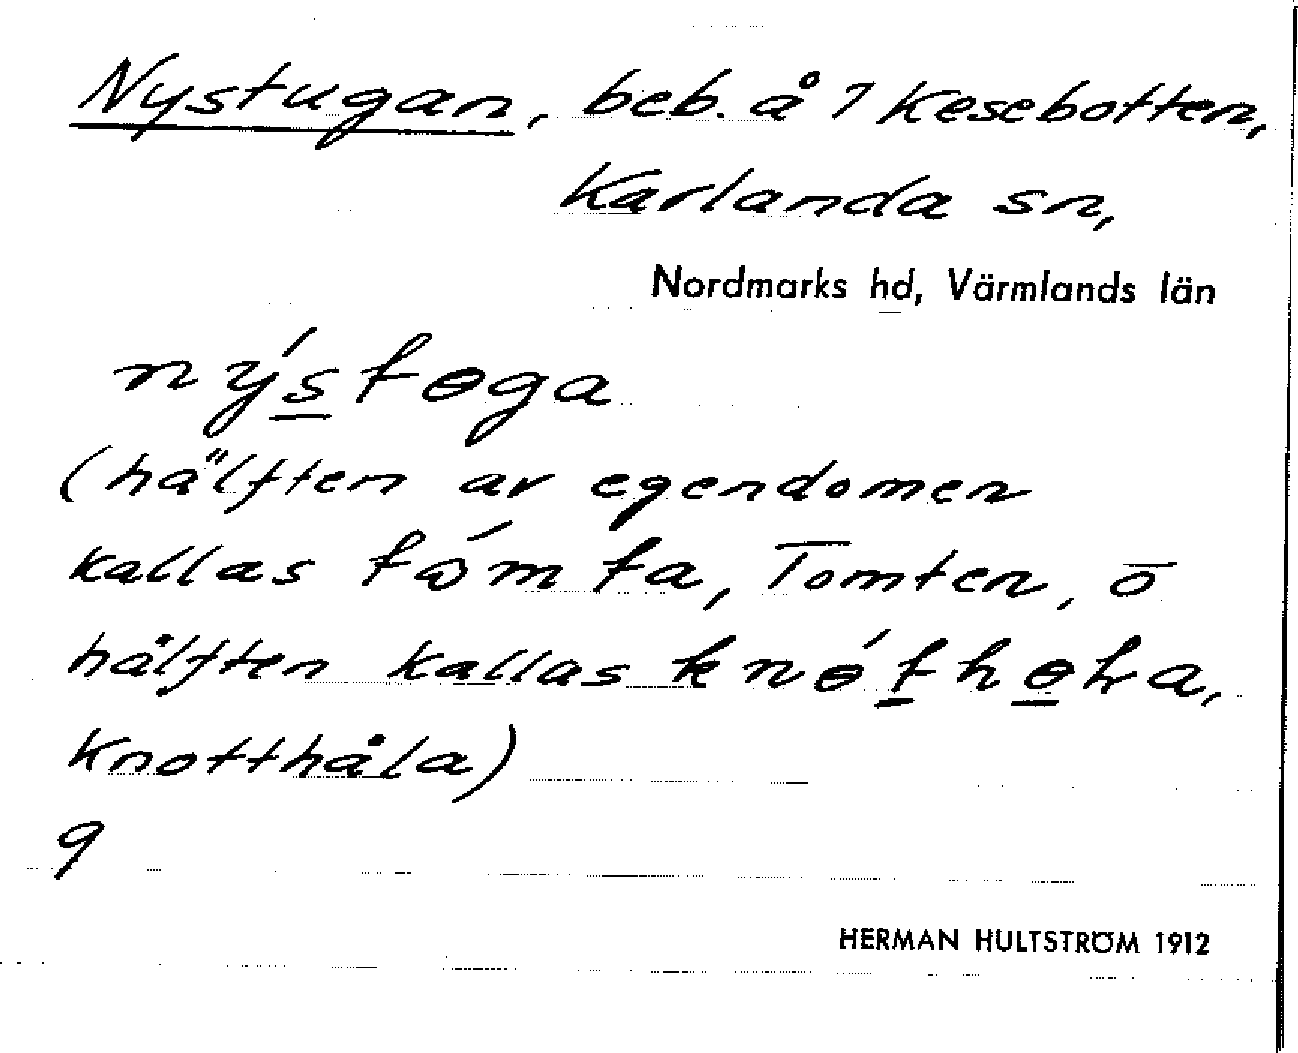 Nystugan, beb. å 7 Kesebotten,
Karlanda sn,
Nordmarks hd, Värmlands län
nýstɵga
(hälften av egendomen
kallas tómta, Tomten, o
hälften kallas
Knotthåla)
9
HERMAN HULTSTRÖM 1912